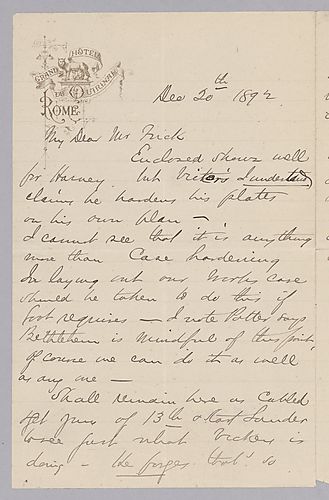 GRAND HÔTEL
DU QUIRINAL
ROME
Dec 20th 1892
My Dear Mr Frick
Enclosed shows well
for Harvey but Vickers I understand
claims he hardens his plates
on his own plan —
I cannot see that it is anything
more than Case hardening
In laying out our Works case
should be taken to do this if
Govt requires — I note Potter says
Bethlehem is mindful of this point,
of course we can do it as well
as any one —
Shall remain here as Cabled
get yours of 13th &
to see just what Vickers is
doing — He forges that so